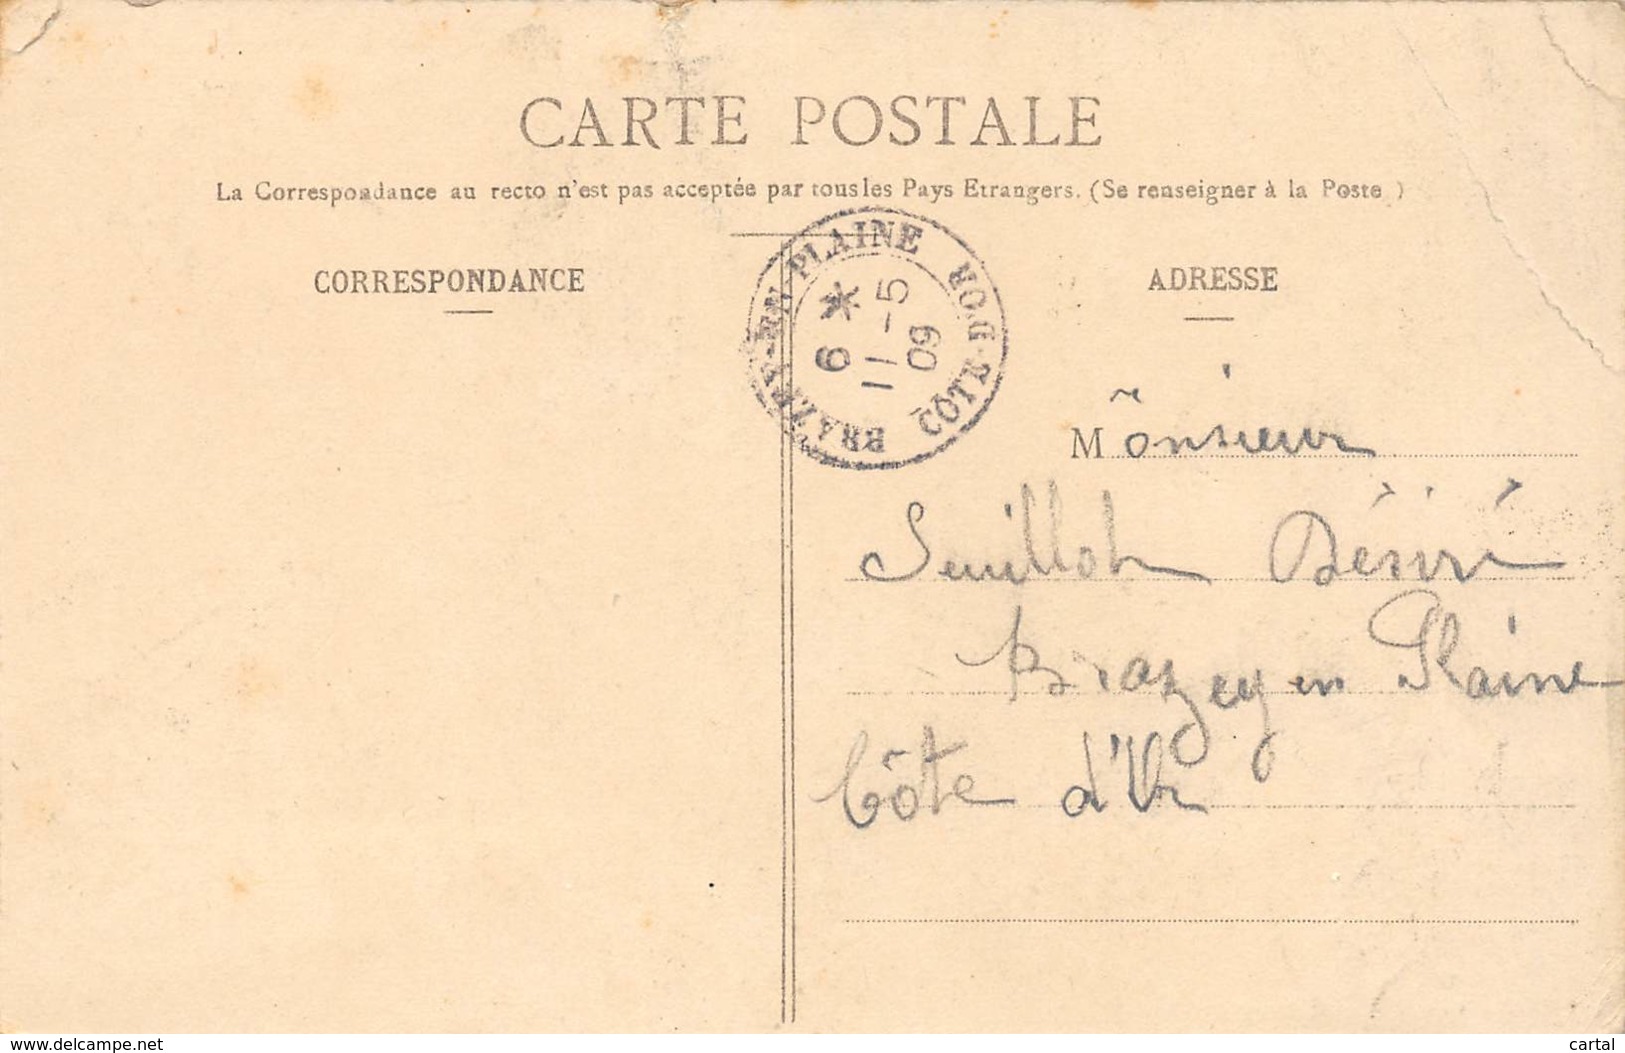 CARTE POSTALE
La Correspondance au recto n'est pas acceptée par tous les Pays Etrangers. (Se renseigner à la Poste)
CORRESPONDANCE
ADRESSE
BRAZEY-EN-PLAINE CÔTE-D'OR
6 *
11-5
09
Monsieur
Seuillot Désiré
Brazey en Plaine
Côte d'Or
www.delcampe.net
cartal